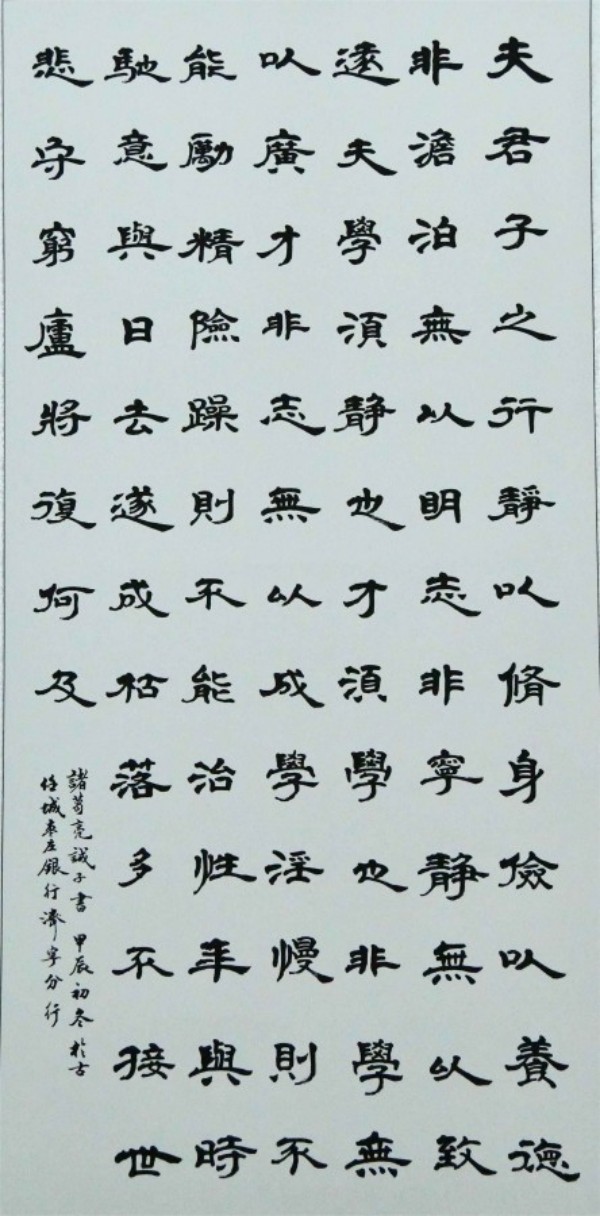 夫君子之行靜以脩身儉以養德
非澹泊無以明志非寧静無以致
遠夫學須静也才須學也非學無
以廣才非志無以成學淫慢則不
能勵精險躁則不能治性年與時
馳意與日去遂成枯落多不接世
悲守窮廬將復何及
諸葛亮誡子書 甲辰初冬於古
任城枣庄銀行濟寧分行